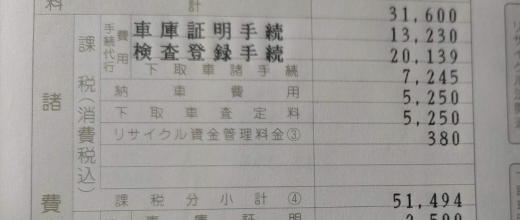 料 計 31,600
諸費
課税(消費税込)
手続代行費用
車庫証明手続 13,230
検査登録手続 20,139
下取車諸手続 7,245
納車費用 5,250
下取車査定料 5,250
リサイクル資金管理料金③ 380
課税分小計④ 51,494
車庫証明